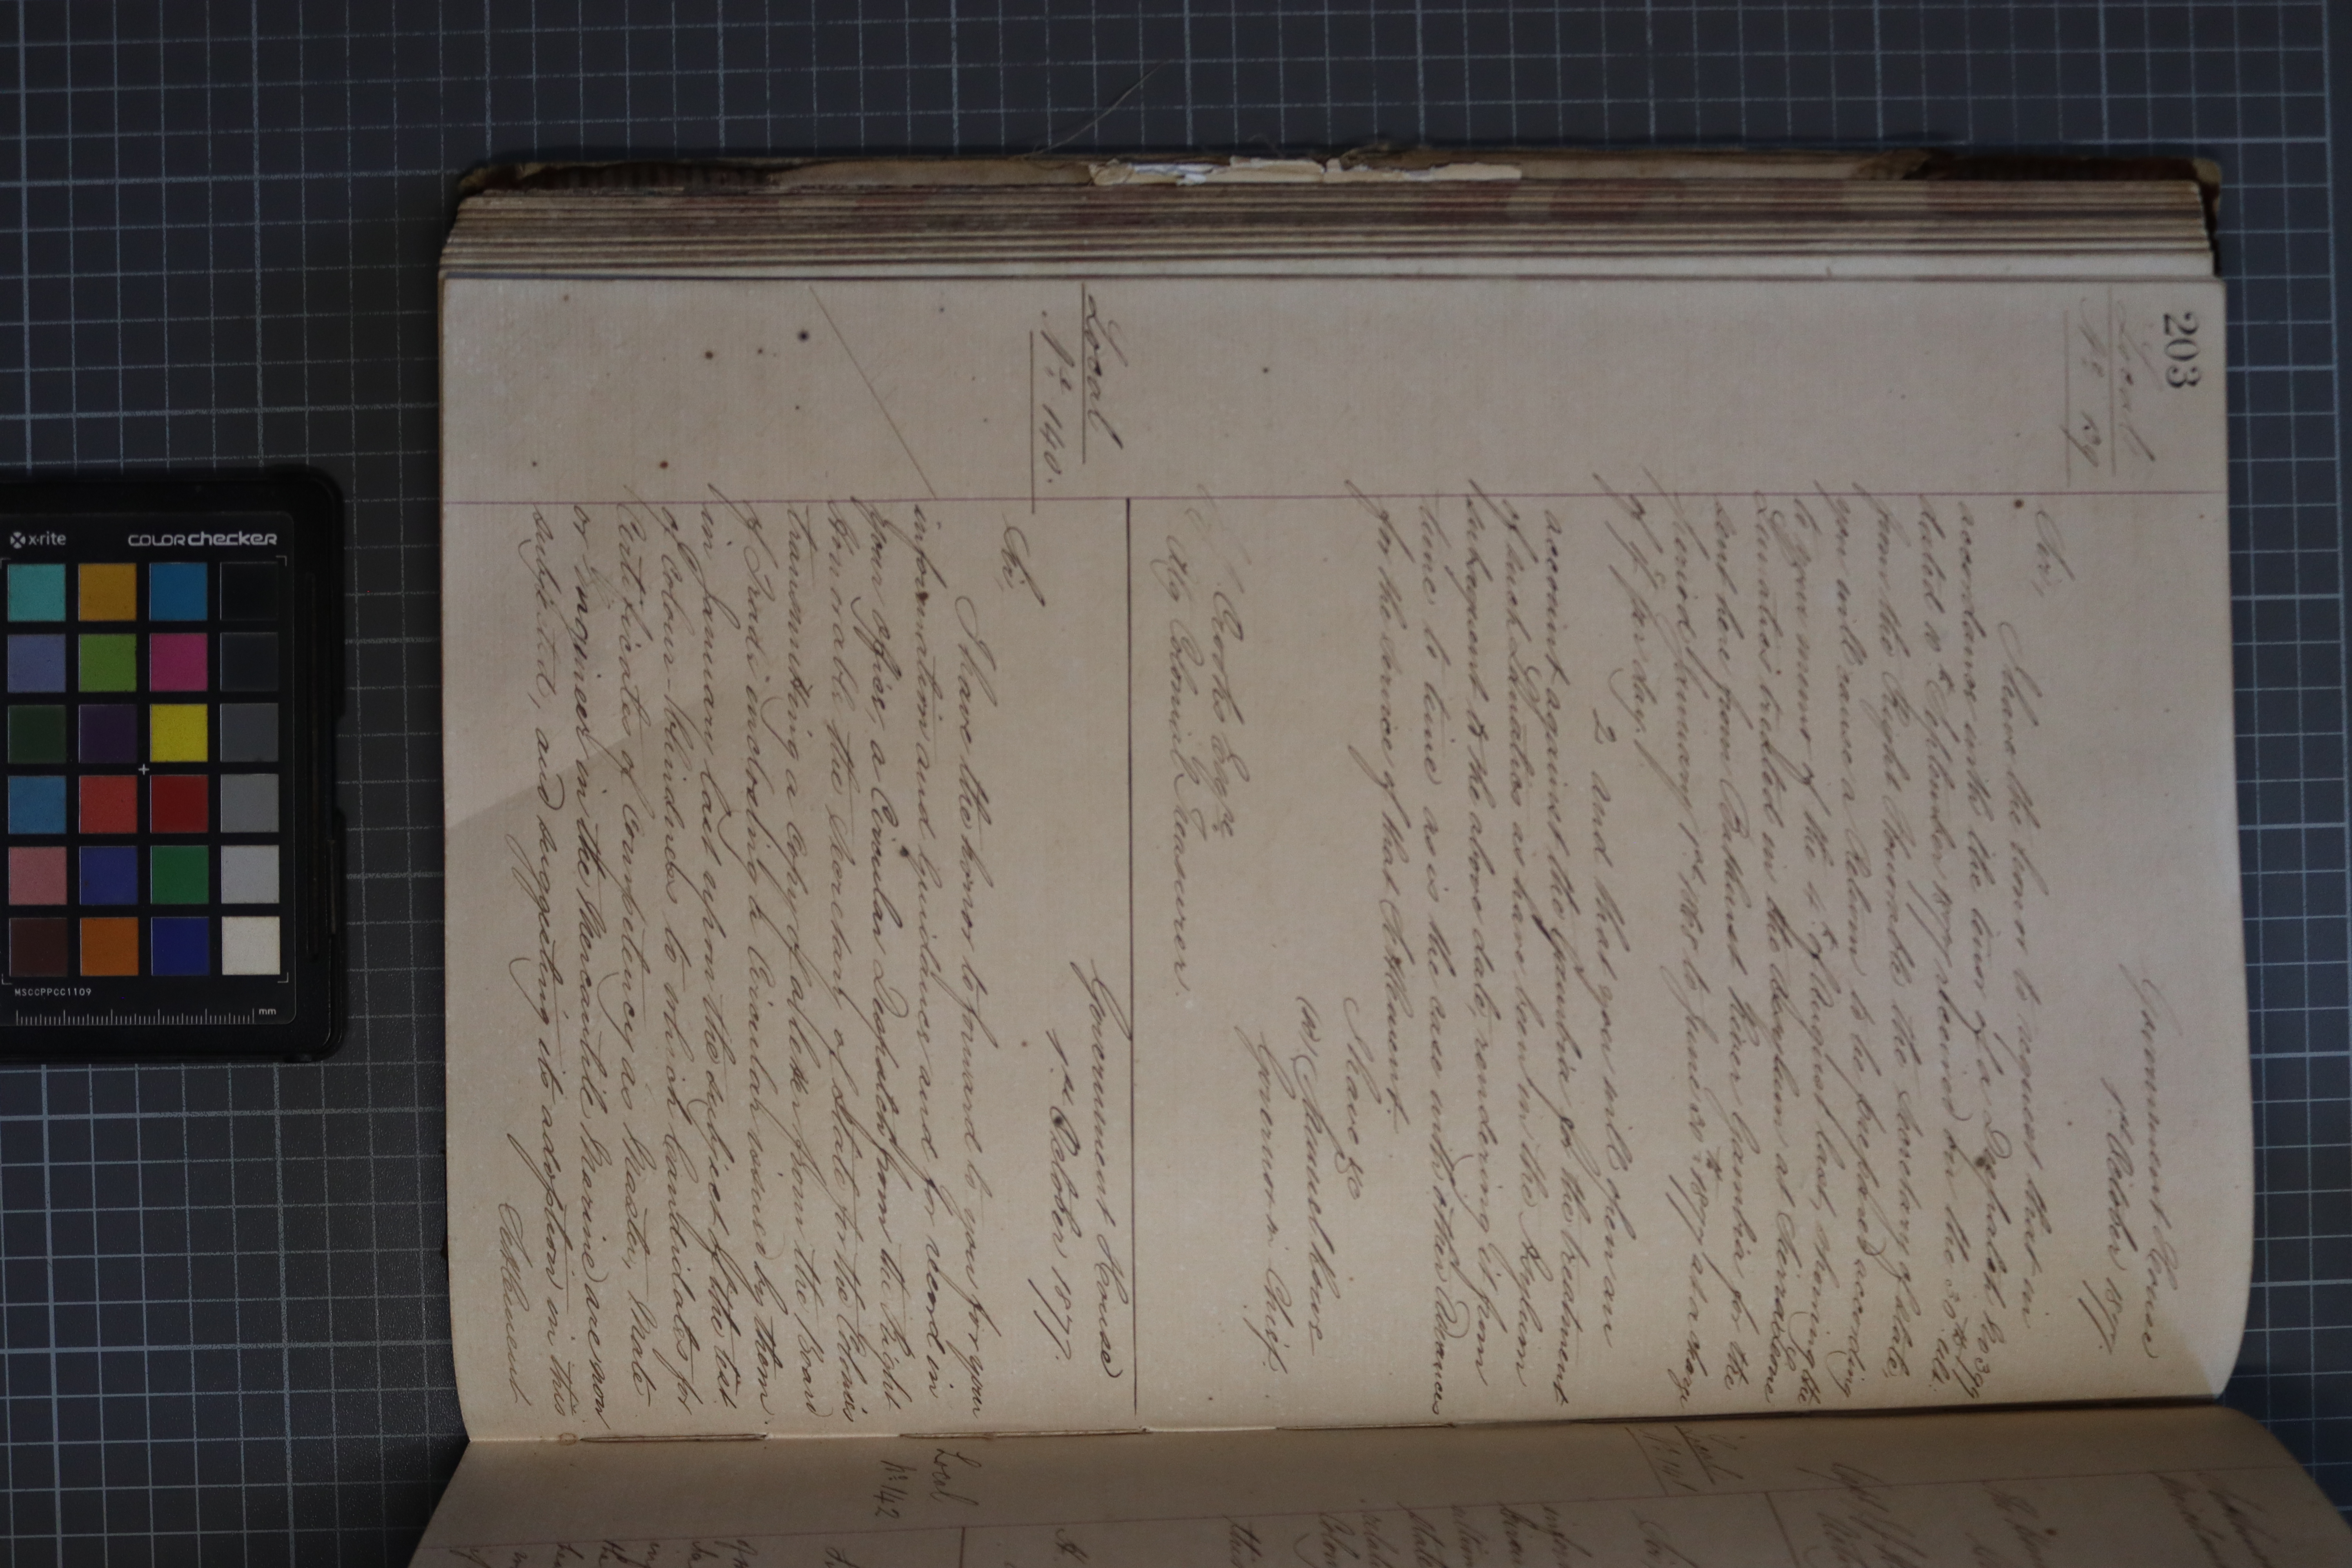 203
Local
No 139
Government House
1st October 1877.
Sir,
I have the honor to request that in
accordance with the tenor of a Despatch No 399
dated 10th September 1877 received on the 30th ult.
from the Right Honorable the Secretary of State,
you will cause a Return to be prepared according
to your memo of the 4th of August last, shewing the
Lunatics treated in the Asylum at Sierra Leone
sent here from Bathurst River Gambia for the
period January 1st to June 30th 1877 at a charge
of 1/- per day.
2 and that you will open an
account against the Gambia for the treatment
of such Lunatics as have been in the Asylum
subsequent to the above date, rendering it from
time to time as is the case with other Advances
for the service of that Settlement.
I have &c
Governor in Chief.
Esqre
Colonial Treasurer.
Local
No 140.
Government House
1st October 1877.
Sir,
I have the honor to forward to you for your
information and guidance and for record in
your office, a Circular Despatch from the Right
Honorable the Secretary of State for the Colonies
transmitting a copy of a letter from the Board
of Trade enclosing a Circular issued by them
in January last upon the subject of the test
of Colour-blindness to which Candidates for
Certificates of Competency as Master, Mate
or Engineer in the Mercantile Marine are now
subjected, and suggesting its adoption in this
Settlement
Local
No 142